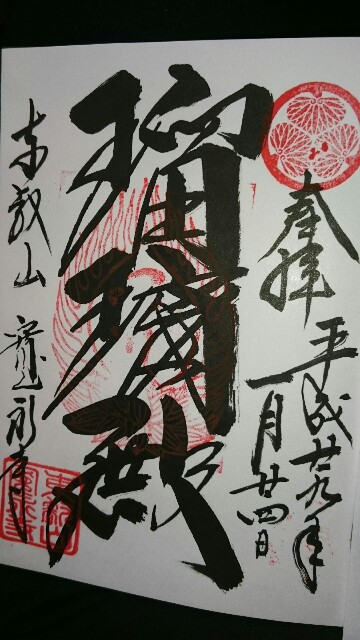 奉拝
平成廿九年
一月廿四日
瑠璃殿
東叡山 寛永寺